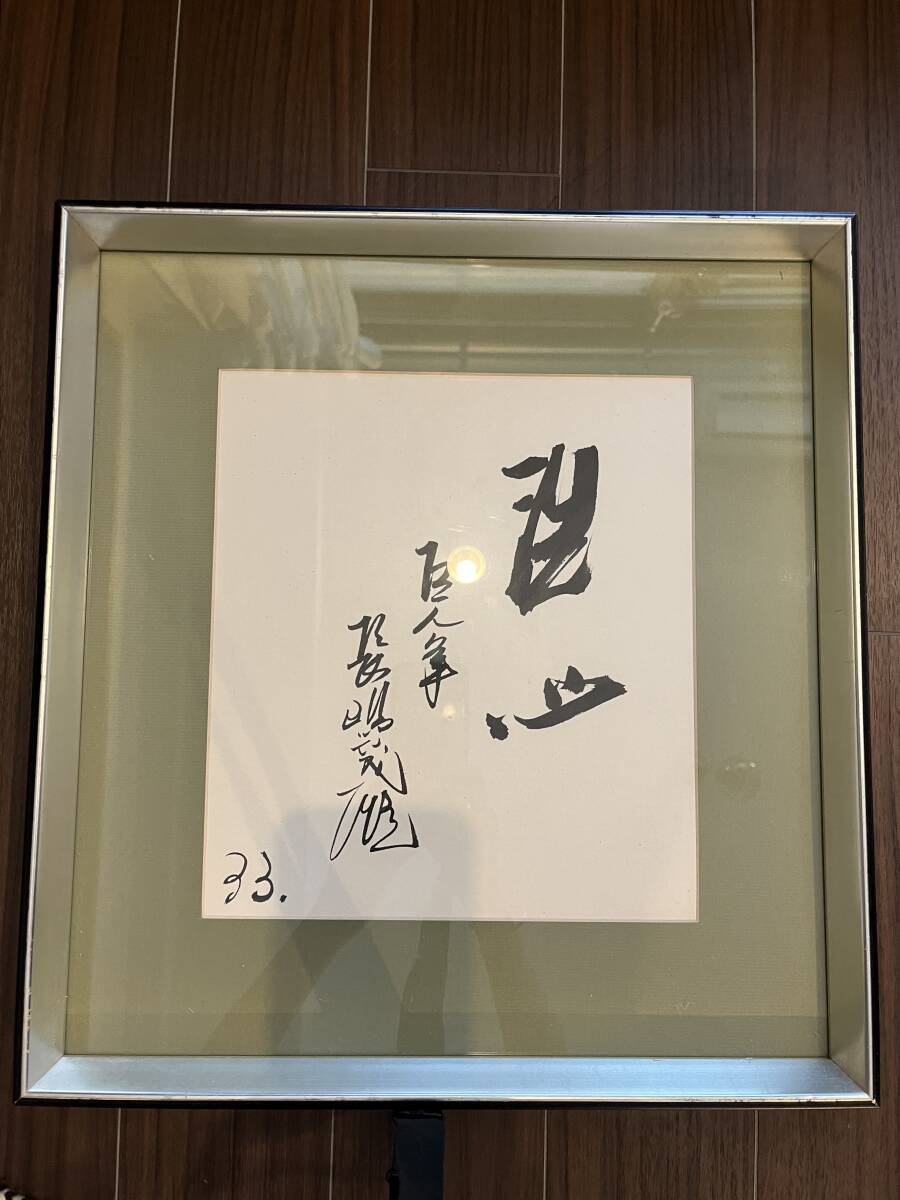 心
巨人軍
長嶋茂雄
33.